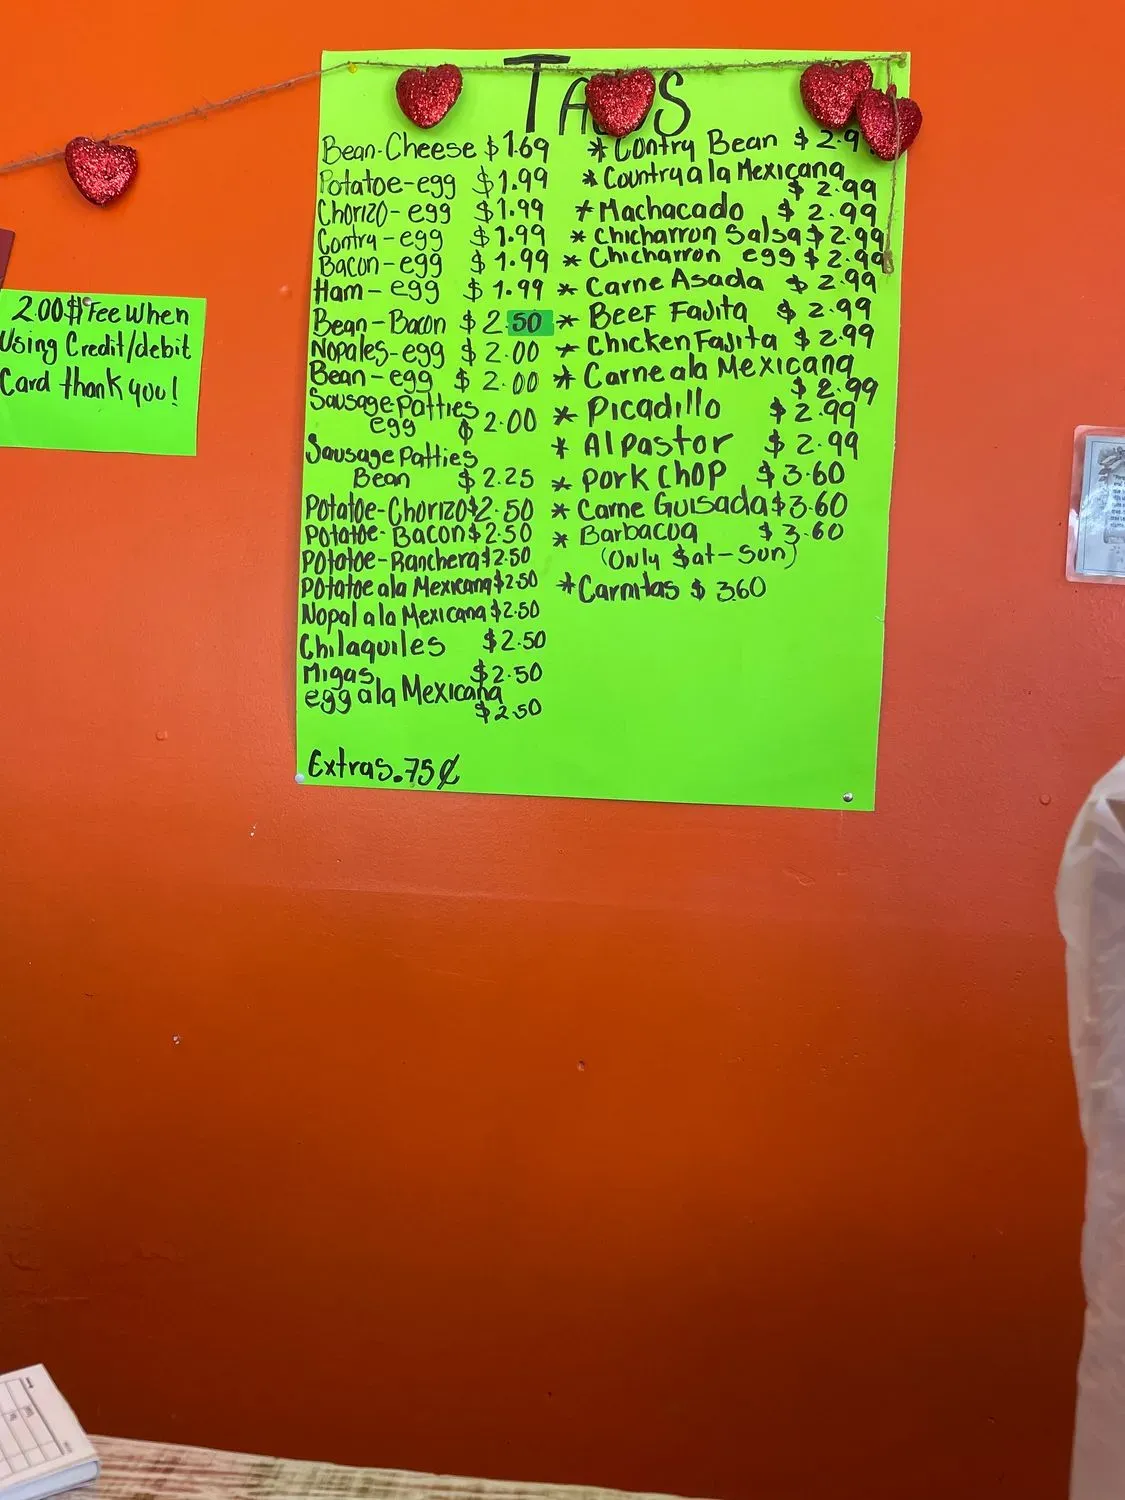 Tacos
Bean-Cheese $1.69
Potatoe-egg $1.99
Chorizo-egg $1.99
Contry-egg $1.99
Bacon-egg $1.99
Ham-egg $1.99
Bean-Bacon $2.50
Nopales-egg $2.00
Bean-egg $2.00
Sausage Patties
egg $2.00
Sausage Patties
Bean $2.25
Potatoe-Chorizo $2.50
Potatoe-Bacon $2.50
Potatoe-Ranchera $2.50
Potatoe ala Mexicana $2.50
Nopal a la Mexicana $2.50
Chilaquiles $2.50
Migas $2.50
egg ala Mexicana
$2.50
Extras .75¢
* Contry Bean $2.9
* Country a la Mexicana
$2.99
* Machacado $2.99
* Chicharron Salsa $2.99
* Chicharron egg $2.99
* Carne Asada $2.99
* Beef Fajita $2.99
* Chicken Fajita $2.99
* Carne ala Mexicana
$2.99
* Picadillo $2.99
* Al pastor $2.99
* Pork Chop $3.60
* Carne Guisada $3.60
* Barbacoa $3.60
(Only Sat-Sun)
* Carnitas $3.60
2.00$ Fee when
Using Credit/debit
Card thank you!